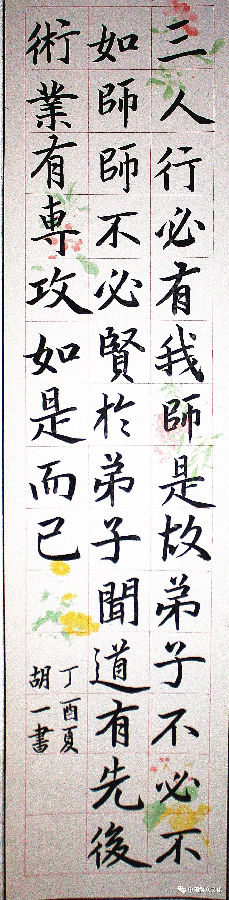 三人行必有我師是故弟子不必不
如師師不必賢於弟子聞道有先後
術業有專攻如是而已
丁酉夏
胡一書